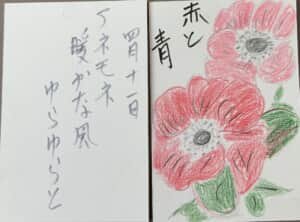 四月十一日
アネモネ
暖かな風
ゆらゆらと
赤と
青